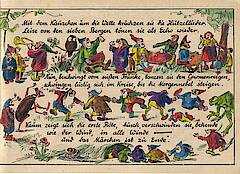 Mit dem Käuzchen um die Wette krächzen sie die Hützellieder.
Leise von den sieben Bergen tönen sie als Echo wieder.
Nun, beschwingt vom süßen Trunke, tanzen sie den Gnomenreigen,
schwingen lustig sich im Kreise, bis die Morgennebel steigen.
Kaum zeigt sich die erste Röte, husch verschwinden sie behende
wie der Wind, in alle Winde —
und das Märchen ist zu Ende.